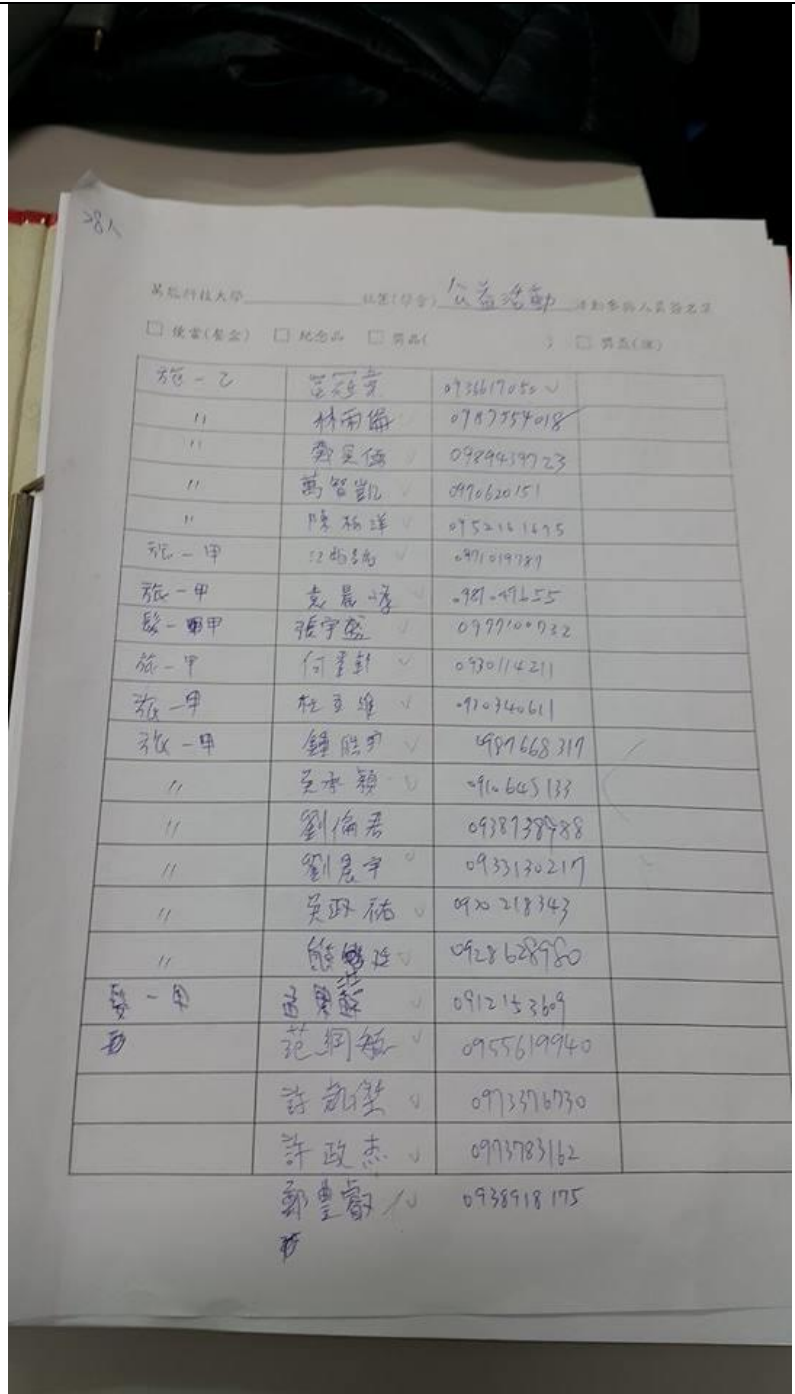 28人
萬能科技大學 社團(學會) 公益活動 活動參與人員簽名單
□ 便當(餐盒) □ 紀念品 □ 獎品( ) □ 獎盃(牌)
旅一乙 0936617050
〃 林雨倫 0987554018
〃 0989439723
〃 萬智凱 0970620151
〃 陳柏洋 0952161695
旅一甲 0971019787
旅一甲 袁晨 0987049655
髮一甲 張宇 0977100732
旅一甲 何 0930114211
旅一甲 杜 維 0970340611
旅一甲 鍾 0987668317
〃 吳承穎 0910645133
〃 劉倫君 0938738988
〃 劉晨宇 0933130217
〃 吳政祐 0920218343
〃 熊 0928628980
髮一甲 孟 0912153609
范綱 0955619940
許凱傑 0973376730
許政杰 0973783162
鄭豊叡 0938918175